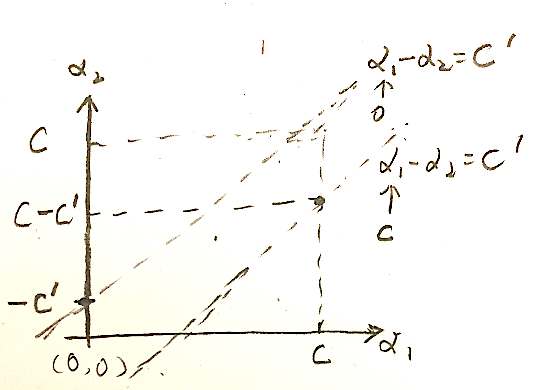 α₂
α₁-α₂=C'
↑
0
C
α₁-α₂=C'
↑
C
C-C'
-C'
(0,0)
C
α₁